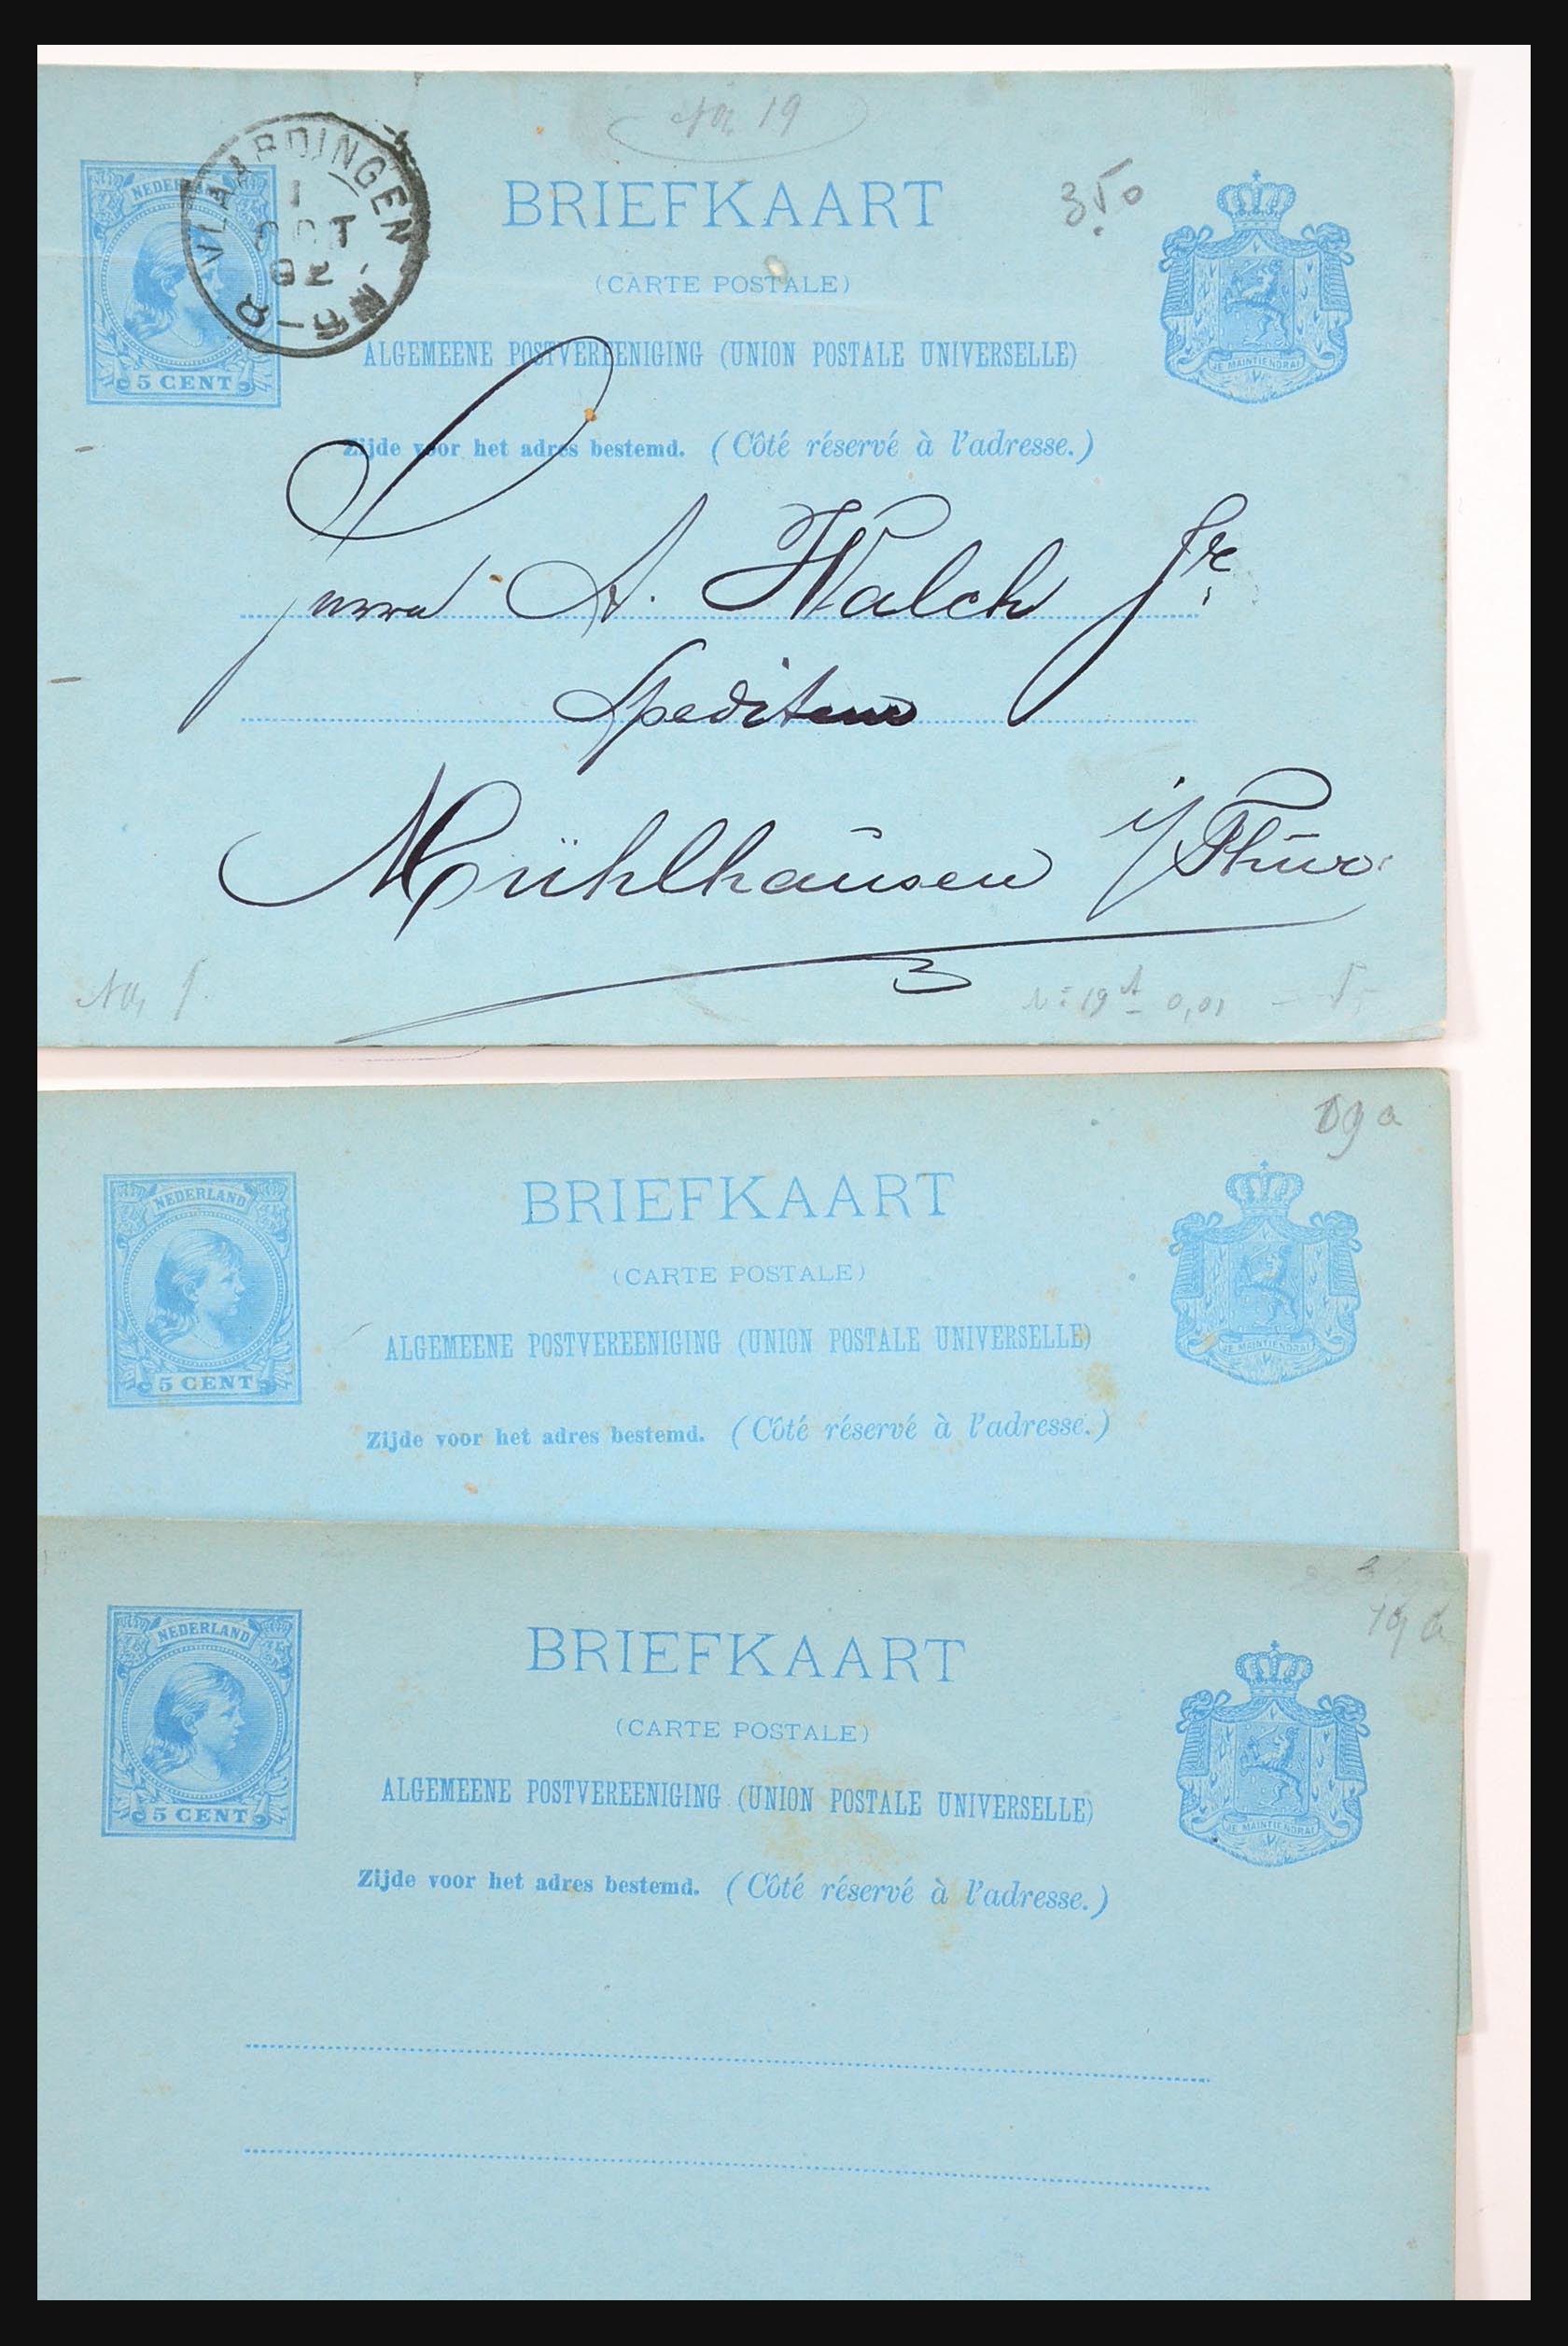 No 19
BRIEFKAART
350
NEDERLAND
VLAARDINGEN
1
OCT
92
(CARTE POSTALE)
ALGEMEENE POSTVEREENIGING (UNION POSTALE UNIVERSELLE)
5 CENT
JE MAINTIENDRAI
Zijde voor het adres bestemd. (Côté réservé à l'adresse.)
Herrn A. Walch Jr.
Spediteur
Mühlhausen i/Thür.
No 19 A 0,01
19 a
NEDERLAND
BRIEFKAART
(CARTE POSTALE)
ALGEMEENE POSTVEREENIGING (UNION POSTALE UNIVERSELLE)
5 CENT
JE MAINTIENDRAI
Zijde voor het adres bestemd. (Côté réservé à l'adresse.)
19 a
NEDERLAND
BRIEFKAART
(CARTE POSTALE)
ALGEMEENE POSTVEREENIGING (UNION POSTALE UNIVERSELLE)
5 CENT
JE MAINTIENDRAI
Zijde voor het adres bestemd. (Côté réservé à l'adresse.)